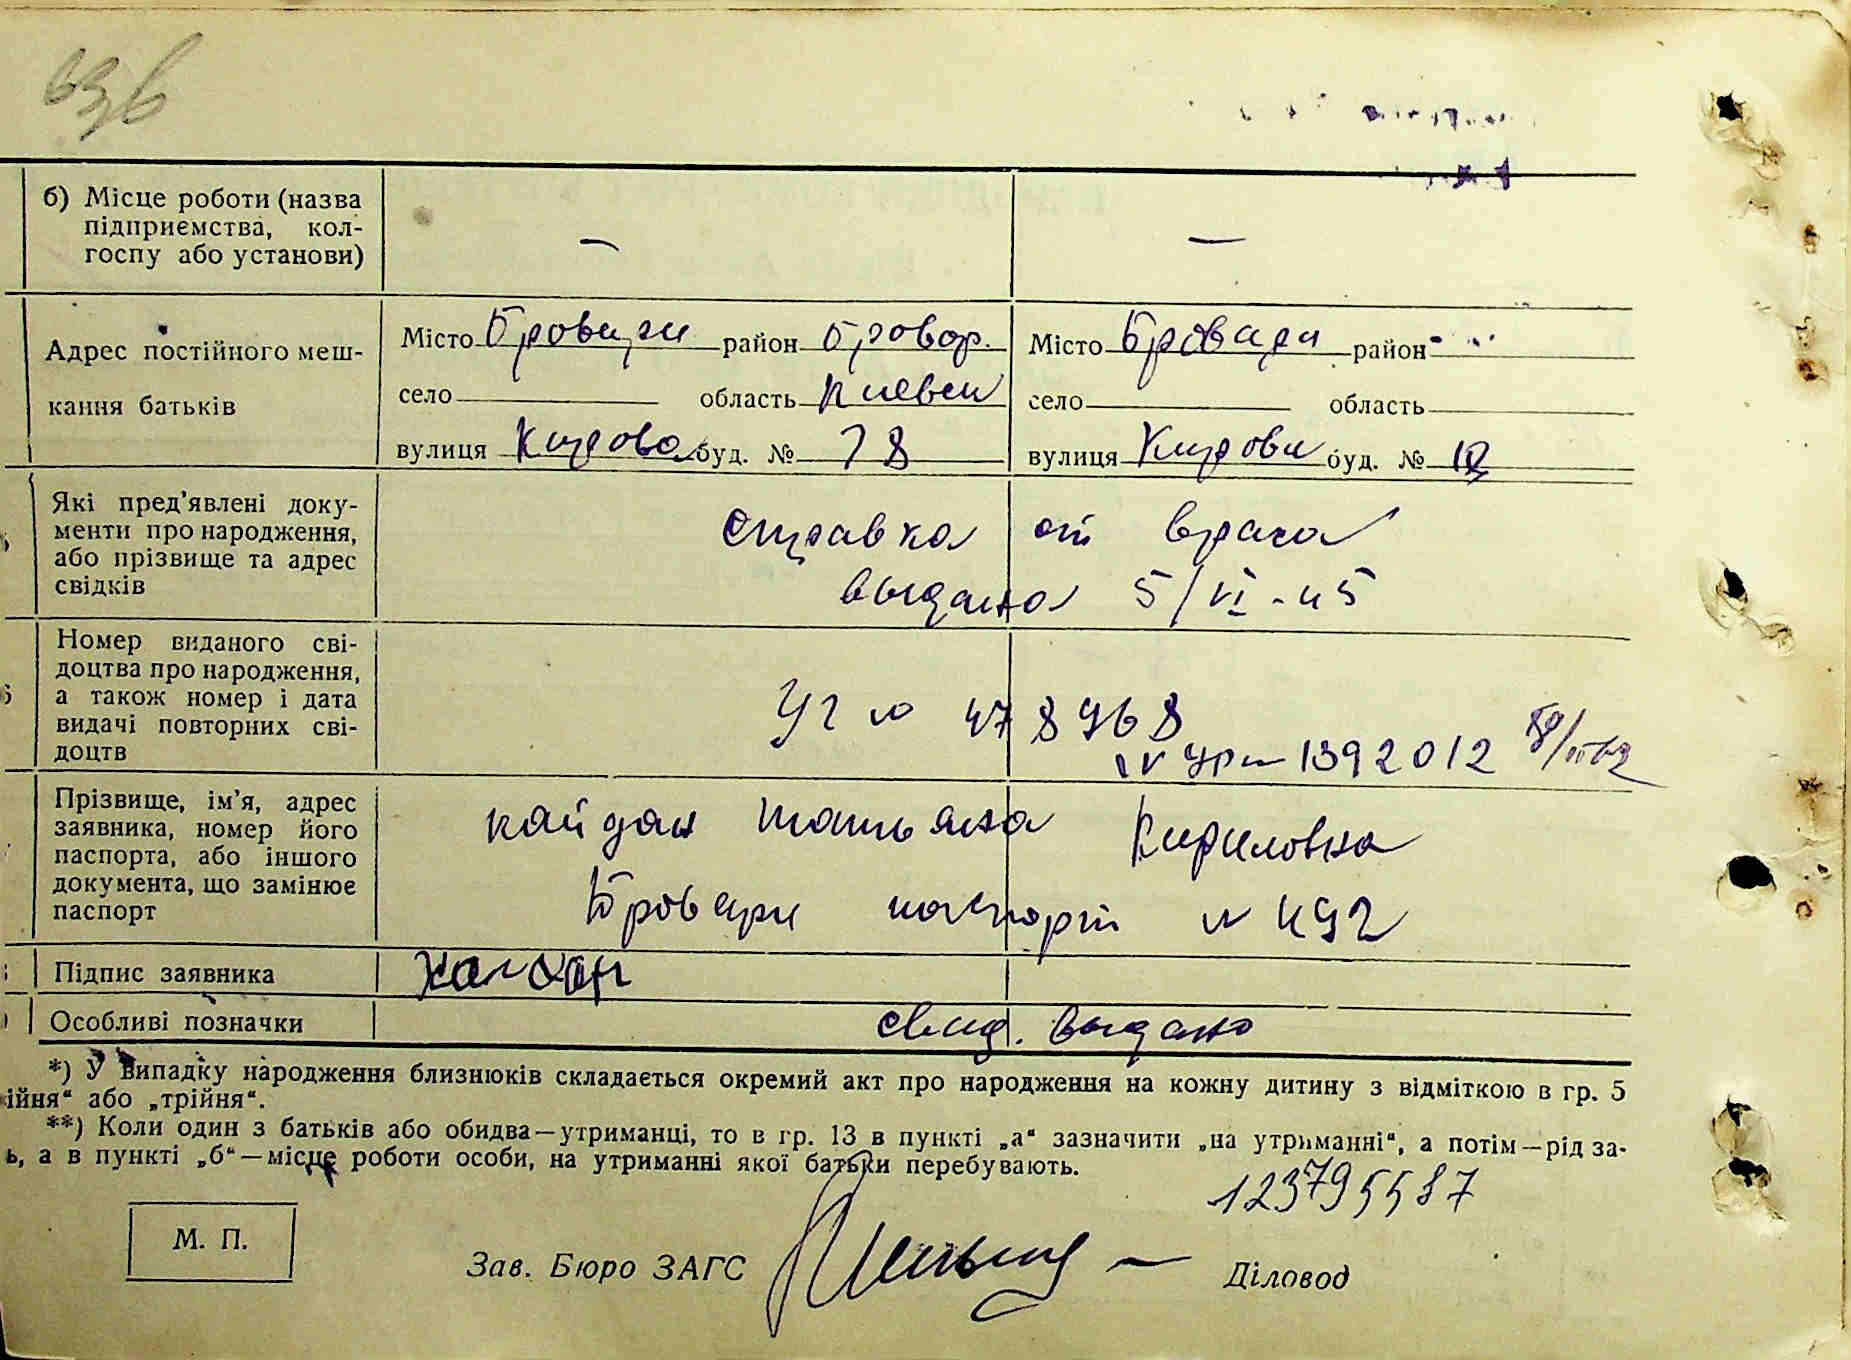 б) Місце роботи (назва
підприємства, кол-
госпу або установи)
—
—
Адрес постійного меш-
кання батьків
Місто Бровари район Бровар.
село область Киевск
вулиця Кирова буд. № 78
Місто Бровари район
село область
вулиця Кирова буд. №
Які пред'явлені доку-
менти про народження,
або прізвище та адрес
свідків
справка от врача
выдана 5/VI-45
Номер виданого сві-
доцтва про народження,
а також номер і дата
видачі повторних сві-
доцтв
478968
1392012
Прізвище, ім'я, адрес
заявника, номер його
паспорта, або іншого
документа, що замінює
паспорт
Кайдан Татьяна Кириловна
Бровари паспорт № 492
Підпис заявника
Особливі позначки
свид. выдано
*) У випадку народження близнюків складається окремий акт про народження на кожну дитину з відміткою в гр. 5
ійня“ або „трійня“.
**) Коли один з батьків або обидва—утриманці, то в гр. 13 в пункті „а“ зазначити „на утриманні“, а потім—рід за-
ь, а в пункті „б“—місце роботи особи, на утриманні якої батьки перебувають.
123795587
М. П.
Зав. Бюро ЗАГС
Діловод